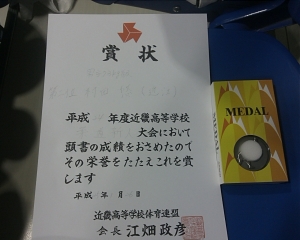 賞状
平成 年度近畿高等学校
大会において
頭書の成績をおさめたので
その栄誉をたたえこれを賞
します
平成 年 月 日
近畿高等学校体育連盟
会長 江畑政彦
MEDAL
MEDAL